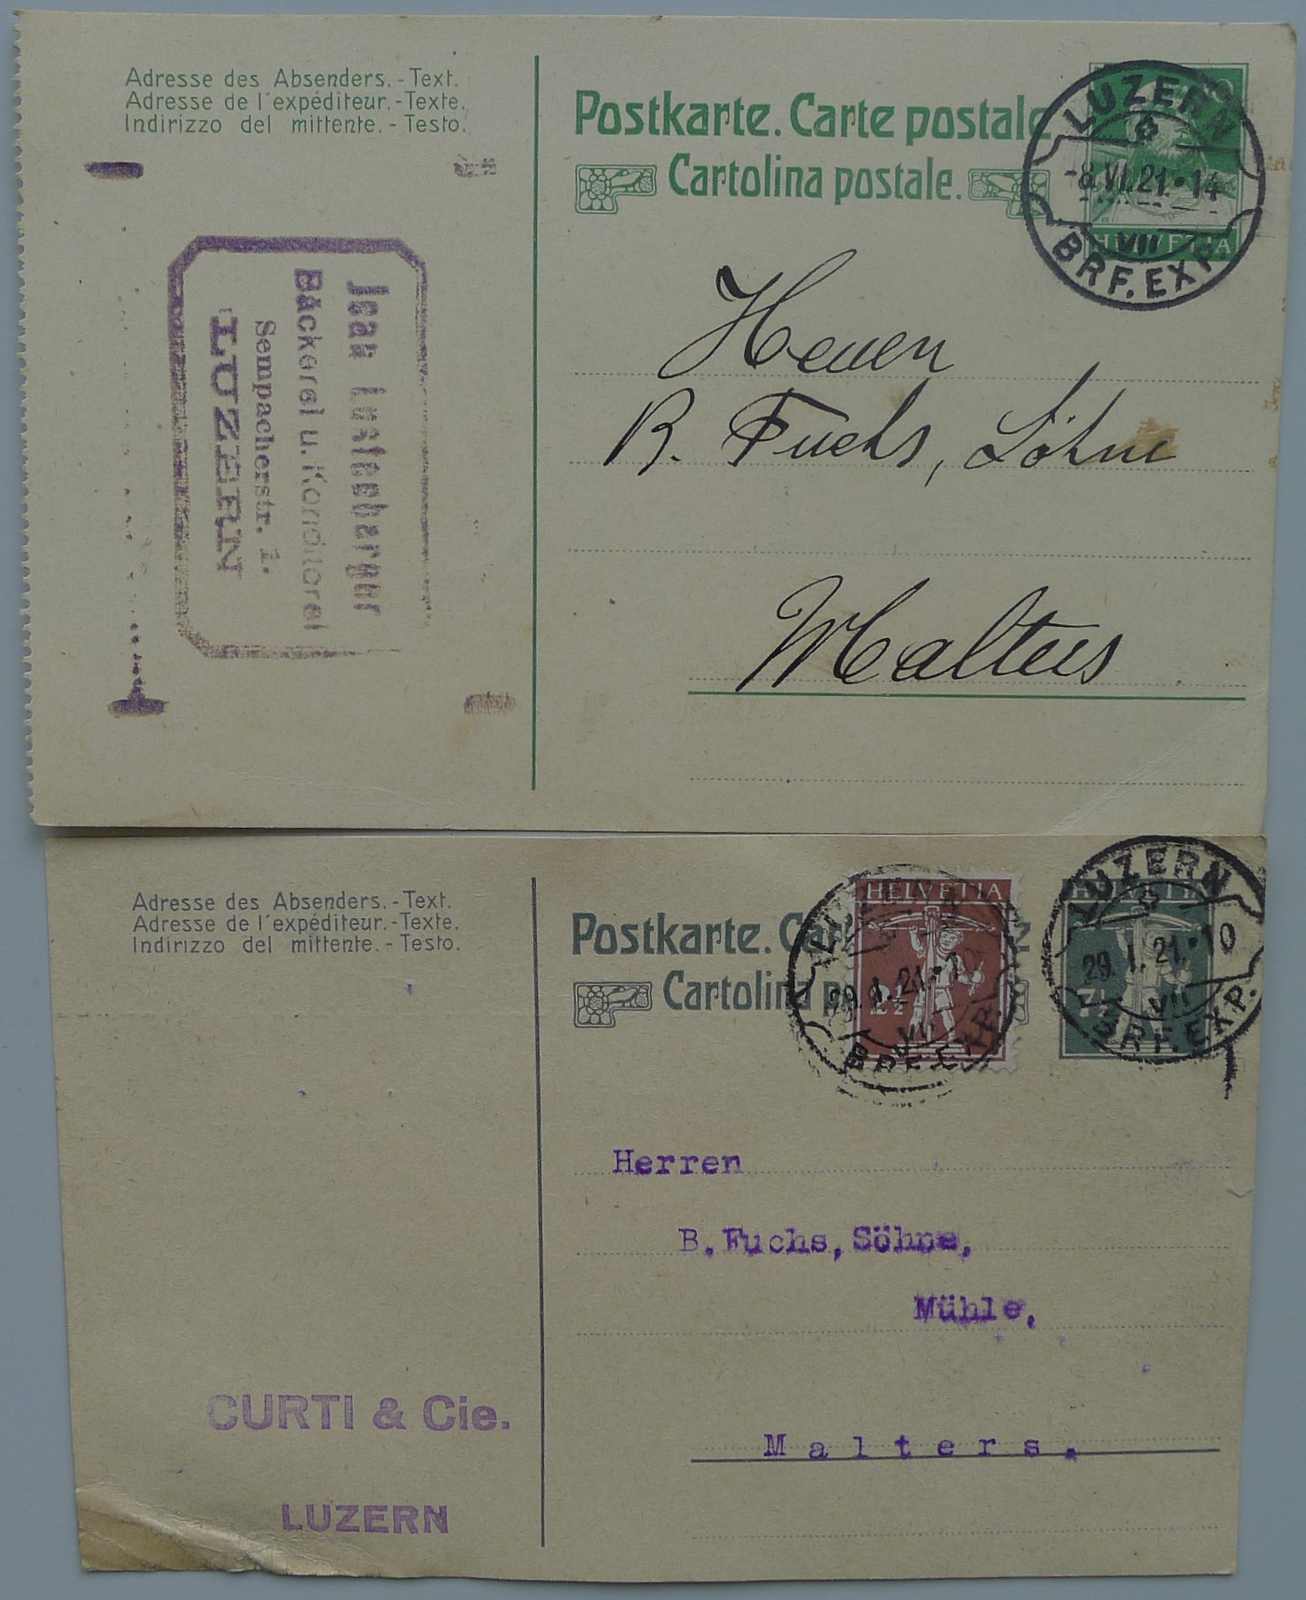 Adresse des Absenders. - Text.
Adresse de l'expéditeur. - Texte.
Indirizzo del mittente. - Testo.
Postkarte. Carte postale
Cartolina postale.
LUZERN
-8.VI.21.•14
VII
BRF. EXP.
HELVETIA
Jean
Bäckerei u. Konditorei
Sempacherstr. 1.
LUZERN
Herren
B. Fuchs, Söhne
Malters
Adresse des Absenders. - Text.
Adresse de l'expéditeur. - Texte.
Indirizzo del mittente. - Testo.
Postkarte. Car
Cartolina po
HELVETIA
2½
29.I.21.•10
VII
BRF. EXP.
LUZERN
29.I.21.•10
VII
BRF. EXP.
7½
Herren
B. Fuchs, Söhne,
Mühle.
Malters.
CURTI & Cie.
LUZERN